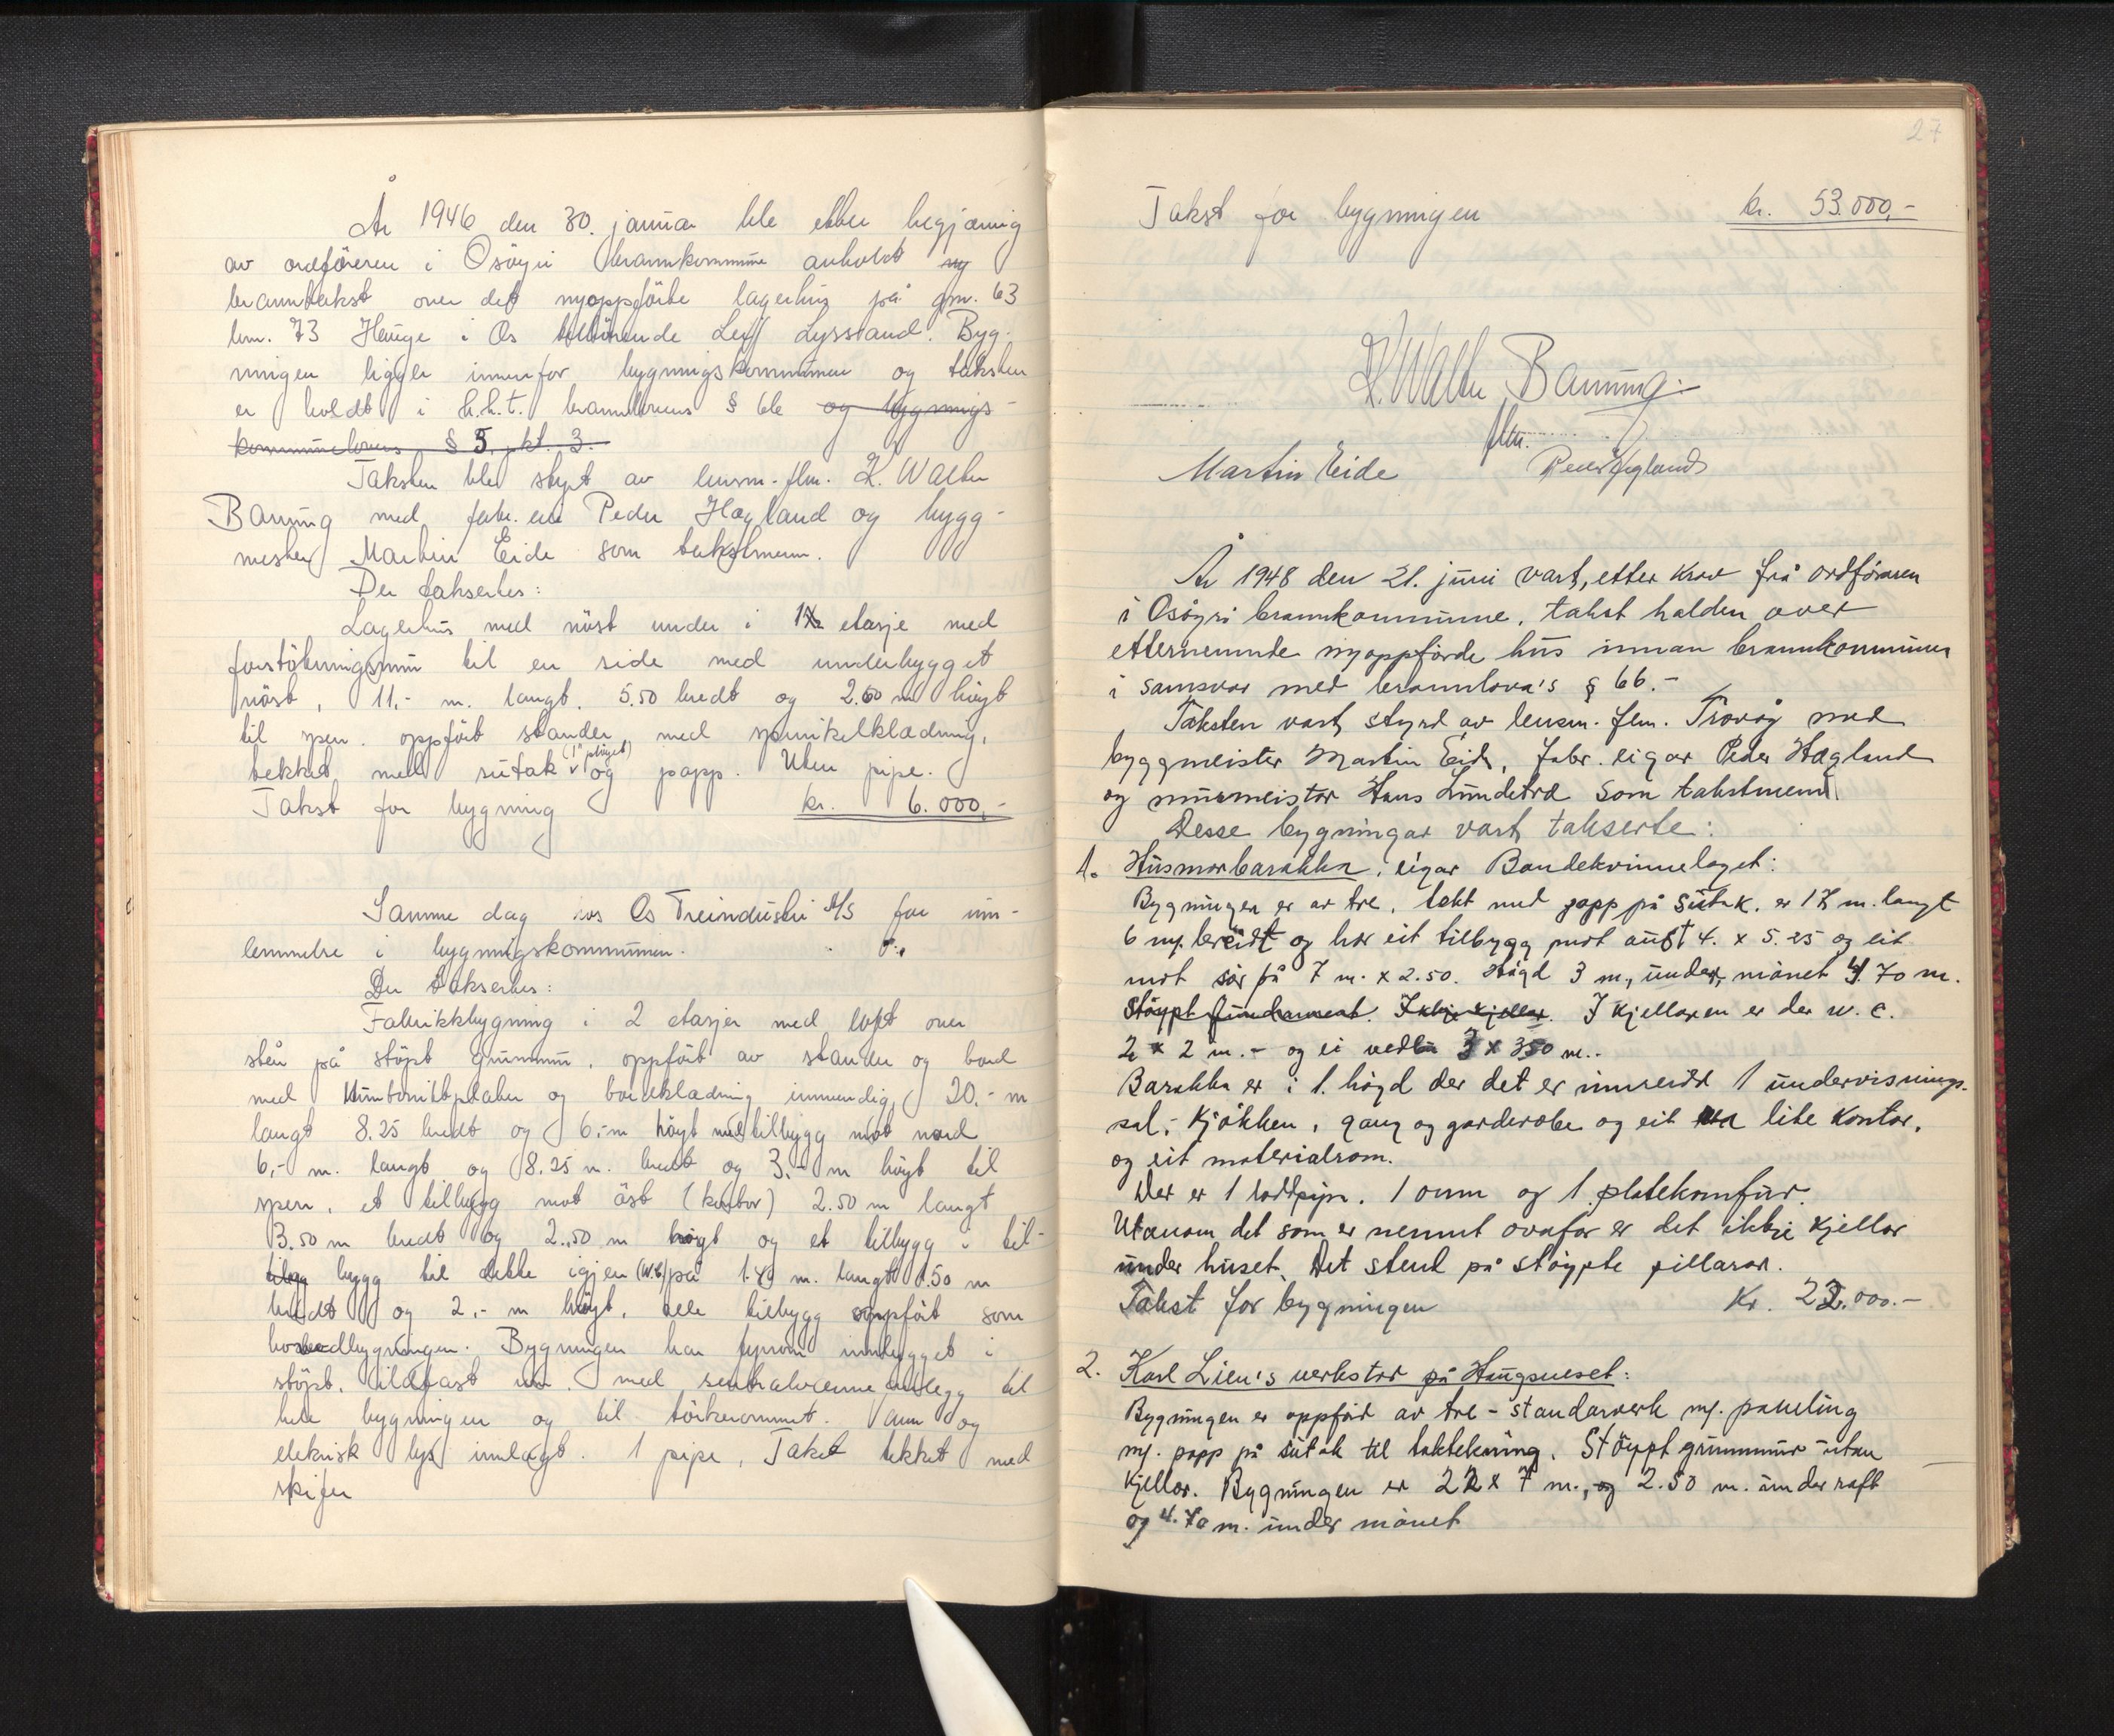 År 1946 den 30. januar ble etter begjæring
av ordföreren i Osöyri brannkommune avholdt ny
branntakst over det nyoppförte lagerhus på gnr. 63
bnr. 73 Hauge i Os tilhörende Leif Lyssand. Byg-
ningen ligger innenfor bygningskommunen og taksten
er holdt i h.h.t. brannlovens § 66 og bygnings-
kommunelovens § 5, pkt. 3.
Taksten ble styrt av lensm.-flm. K. Walter
Baning med fabr. eier Peder Hegland og bygg-
mester Martin Eide som takstmenn.
Der taksertes:
Lagerhus med nöst under i 1½ etasje med
forstötningsmur til en side med underbygget
nöst, 11,- m. langt, 5.50 bredt og 2.60 m höyt
til sper. oppfört stander, med spunkelklædning,
tekket med sutak (1" pløyet) og papp. Uten pipe.
Takst for bygning kr. 6.000,-
Samme dag hos Os Treindustri A/S for inn-
lemmelse i bygningskommunen.
Der taksertes:
Fabrikkbygning i 2 etasjer med loft over
står på stöpt grunnmur, oppfört av stander og bord
med plater og bordkledning innvendig, 20,- m
langt 8.25 bredt og 6,- m höyt med tilbygg mot nord
6,- m. langt og 8.25 m. bredt og 3,- m höyt til
sper, et tilbygg mot öst (kontor) 2.50 m langt
3.50 m bredt og 2.50 m höyt og et tilbygg i til-
bygg til dette igjen (W.C) på 1.40 m. langt 1.50 m
bredt og 2,- m höyt, alle tilbygg oppfört som
hovedbygningen. Bygningen har fyrrom innbygget i
stöpt, ildfast mur med sentralvarmeanlegg til
hele bygningen og til törkerommet. Vann og
elektrisk lys innlagt. 1 pipe, Taket tekket med
skifer
27
Takst for bygningen kr. 53.000,-
K. Walter Baning
flm.
Martin Eide Peder Hegland
År 1948 den 21. juni vart, etter krav frå ordföraren
i Osöyri brannkommune, takst halden over
etternemnde nyoppförde hus innan brannkommunen
i samsvar med brannlova's § 66.-
Taksten vart styrd av lensm. flm. Trovåg med
byggmeister Martin Eide, fabr. eigar Peder Hegland
og murmeister Hans Lundetræ som takstmenn.
Desse bygningar vart takserte:
1. Husmorbarakka, eigar Bondekvinnelaget:
Bygningen er av tre, tekt med papp på sutak, er 17 m. langt
6 m. breidt og har eit tilbygg mot aust 4. x 5.25 og eit
mot sör på 7 m. x 2.50. Högd 3 m., under mönet 4.70 m.
Stöypt fundament. Ikkje kjellar. I kjellaren er der w.c.
2 x 2 m.- og ei vedbu 3 x 350 m.-
Barakka er i 1. högd der det er innreidd 1 undervisnings-
sal,- kjökken, gang og garderobe og eit lite kontor,
og eit materialrom.
Der er 1 loddpipe. 1 omn og 1 platekomfur.
Utanom det som er nemnt ovafor er det ikkje kjellar
under huset. Det stend på stöypte pillarar.
Takst for bygningen Kr. 22.000.-
2. Karl Lien's verkstad på Haugsneset:
Bygningen er oppförd av tre - standarverk m/. paneling
m/. papp på sutak til taktekning. Stöypt grunnmur utan
kjellar. Bygningen er 22 x 7 m., og 2.50 m. under raft
og 4.70 m. under mönet